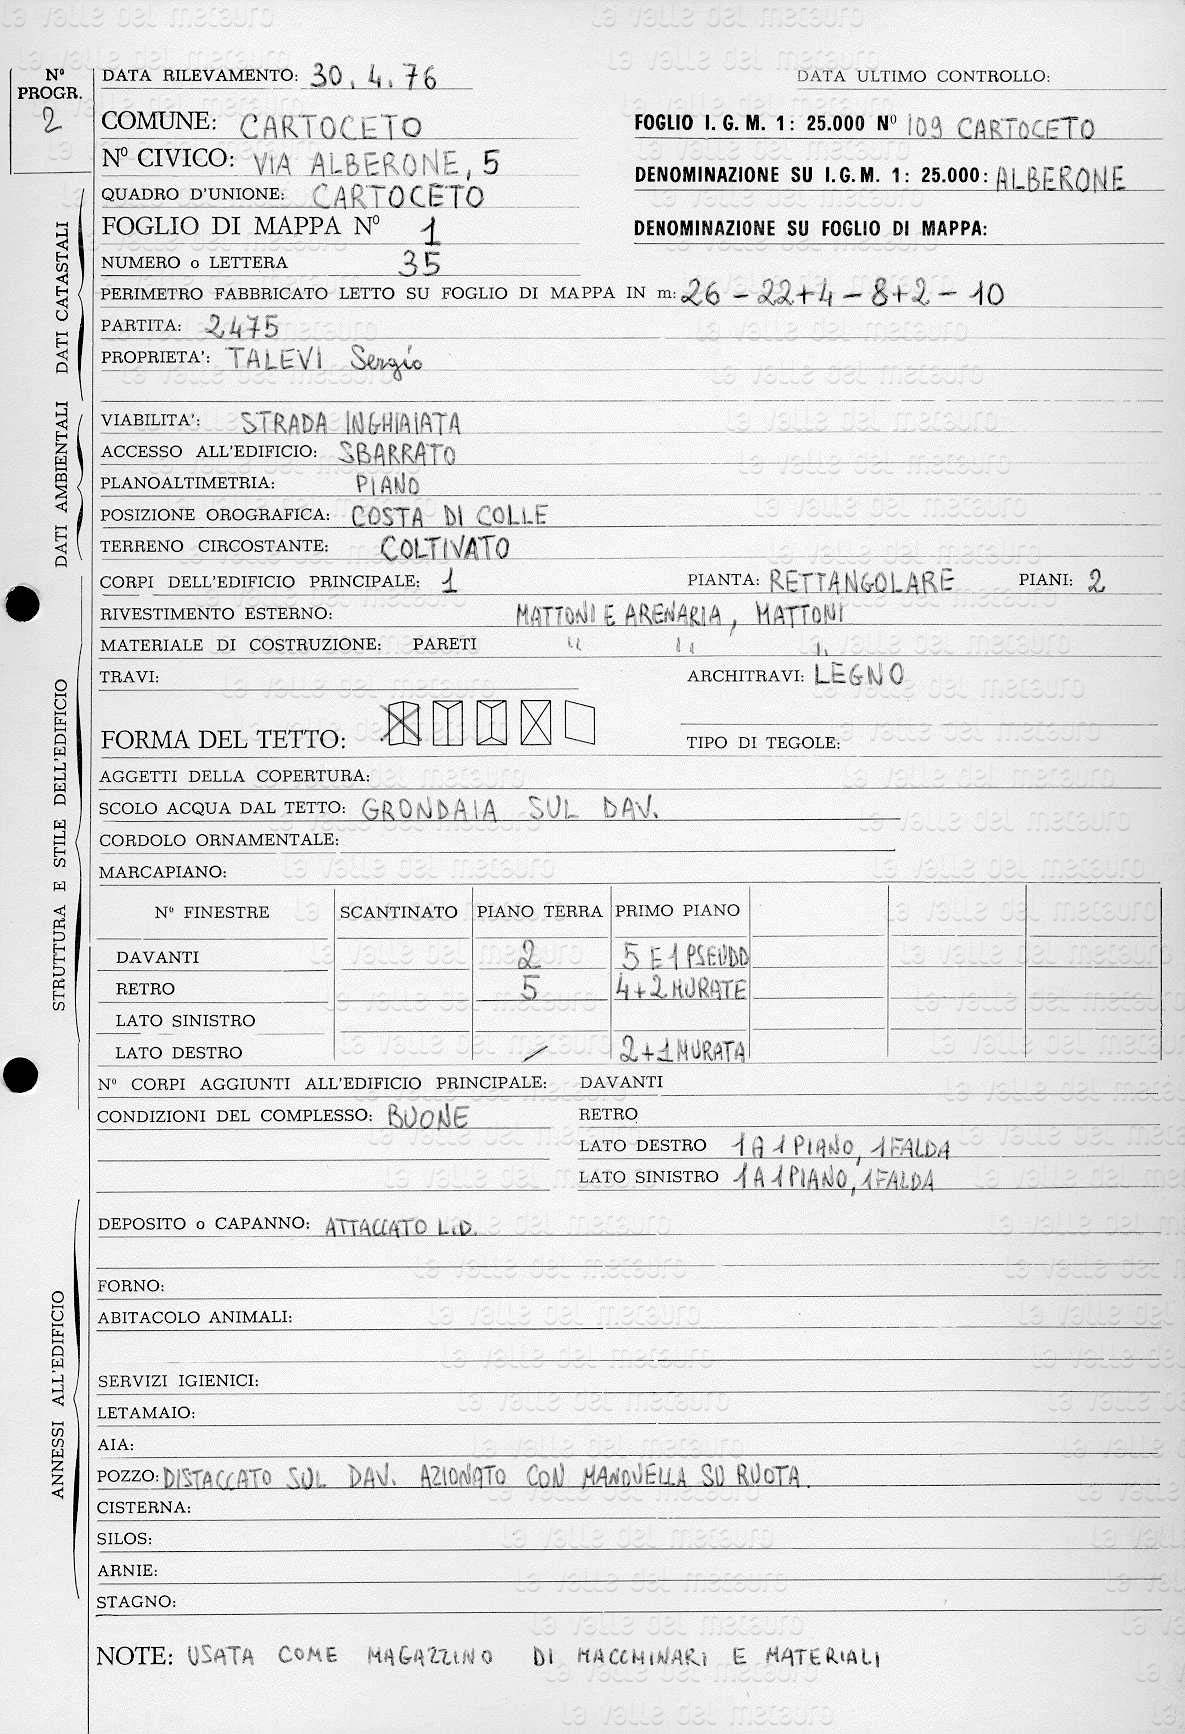 la valle del metauro
Nº PROGR. 2
DATA RILEVAMENTO: 30.4.76
DATA ULTIMO CONTROLLO:
COMUNE: CARTOCETO
FOGLIO I. G. M. 1: 25.000 Nº 109 CARTOCETO
Nº CIVICO: VIA ALBERONE, 5
DENOMINAZIONE SU I.G.M. 1: 25.000: ALBERONE
QUADRO D'UNIONE: CARTOCETO
FOGLIO DI MAPPA Nº 1
DENOMINAZIONE SU FOGLIO DI MAPPA:
NUMERO o LETTERA 35
PERIMETRO FABBRICATO LETTO SU FOGLIO DI MAPPA IN m: 26 - 22+4 - 8+2 - 10
PARTITA: 2475
PROPRIETA': TALEVI Sergio
DATI CATASTALI
VIABILITA': STRADA INGHIAIATA
ACCESSO ALL'EDIFICIO: SBARRATO
PLANOALTIMETRIA: PIANO
POSIZIONE OROGRAFICA: COSTA DI COLLE
TERRENO CIRCOSTANTE: COLTIVATO
DATI AMBIENTALI
CORPI DELL'EDIFICIO PRINCIPALE: 1 PIANTA: RETTANGOLARE PIANI: 2
RIVESTIMENTO ESTERNO: MATTONI E ARENARIA, MATTONI
MATERIALE DI COSTRUZIONE: PARETI " " "
TRAVI: ARCHITRAVI: LEGNO
FORMA DEL TETTO: TIPO DI TEGOLE:
AGGETTI DELLA COPERTURA:
SCOLO ACQUA DAL TETTO: GRONDAIA SUL DAV.
CORDOLO ORNAMENTALE:
MARCAPIANO:
Nº FINESTRE SCANTINATO PIANO TERRA PRIMO PIANO
DAVANTI 2 5 E 1 PSEUDO
RETRO 5 4+2 MURATE
LATO SINISTRO
LATO DESTRO / 2+1 MURATA
STRUTTURA E STILE DELL'EDIFICIO
Nº CORPI AGGIUNTI ALL'EDIFICIO PRINCIPALE: DAVANTI
CONDIZIONI DEL COMPLESSO: BUONE RETRO
LATO DESTRO 1 A 1 PIANO, 1 FALDA
LATO SINISTRO 1 A 1 PIANO, 1 FALDA
DEPOSITO o CAPANNO: ATTACCATO L.D.
FORNO:
ABITACOLO ANIMALI:
SERVIZI IGIENICI:
LETAMAIO:
AIA:
POZZO: DISTACCATO SUL DAV. AZIONATO CON MANOVELLA SU RUOTA.
CISTERNA:
SILOS:
ARNIE:
STAGNO:
ANNESSI ALL'EDIFICIO
NOTE: USATA COME MAGAZZINO DI MACCHINARI E MATERIALI